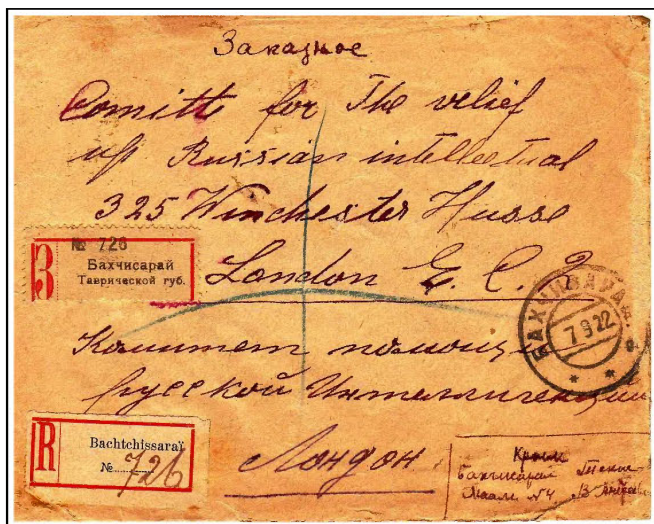 Заказное
Comitte for The relief
of Russian intellectual
325 Winchester Husse
London E. C. 2
№ 726
З
Бахчисарай
Таврической губ.
БАХЧИСАРАЙ
7 9 22
Комитет помощи
русской Интеллигенции
Лондон
R
Bachtchissaraï
№ 726
Крым
Бахчисарай
№ 4